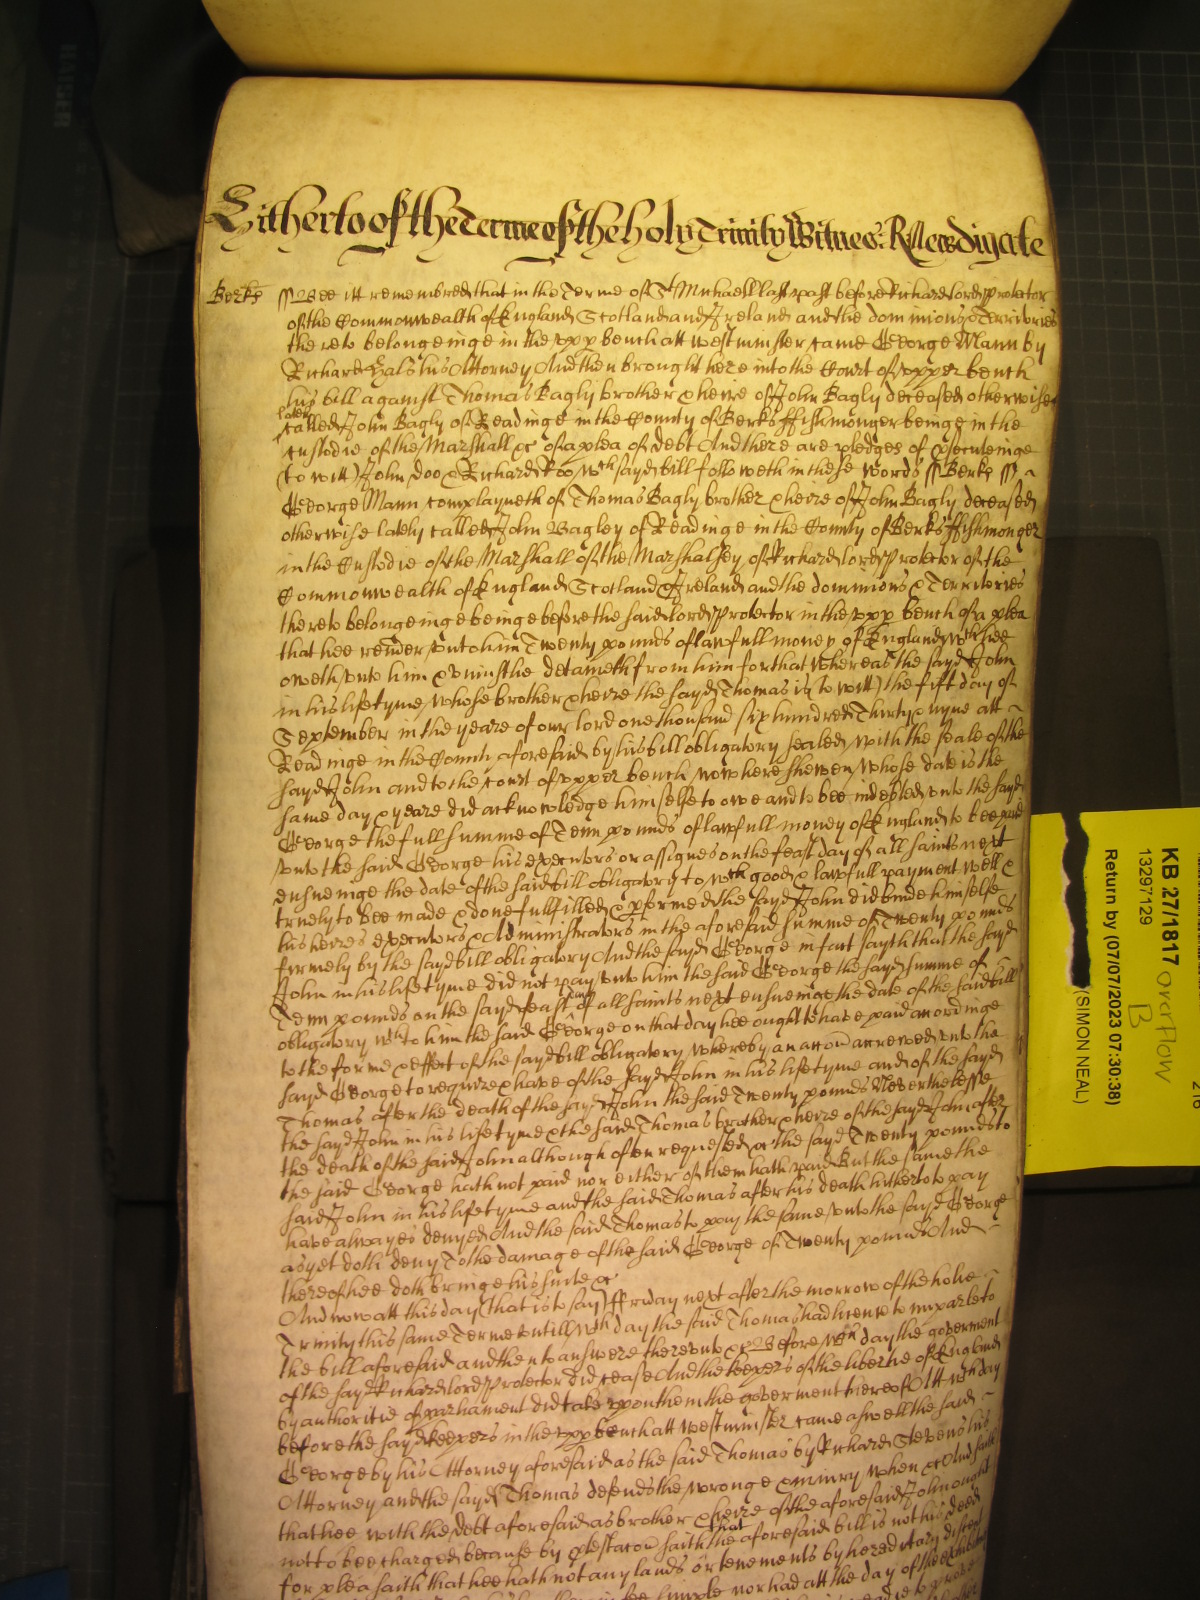 Hitherto of the Terme of the holy Trinity Witnes: R: Newdigate
Berks ss Bee itt remembred that in the Terme of St Michaell last past before Richard lord Protector
of the Commonwealth of England Scotland and Ireland and the dominions & Territories
thereto belongeinge in the upp bench att Westminster came George Mann by
Richard Hals his Attorney And then brought here into the Court of upper bench
his bill against Thomas Bagly brother & heire of John Bagly deceased otherwise
lately called John Bagly of Readinge in the County of Berks ffishmonger beinge in the
custodie of the Marshall &c of a plea of debt And there are pledges of psecuteinge
(to witt) John Doo & Richard Roo wch sayd bill followeth in these words ss Berks ss
George Mann complayneth of Thomas Bagly brother & heire of John Bagly deceased
otherwise lately called John Bagley of Readinge in the County of Berks ffishmonger
in the Custodie of the Marshall of the Marshalsey of Richard lord Protector of the
Commonwealth of England Scotland & Ireland and the dominions & Territories
thereto belongeinge beinge before the said lord Protector in the upp bench of a plea
that hee render unto him Twenty pounds of lawfull money of England wch hee
oweth unto him & uniustlie detaineth from him for that Whereas the sayd John
in his life tyme whose brother & heire the sayd Thomas is (to witt) the fift day of
September in the yeare of our lord one thousand six hundred Thirty & nyne att
Readinge in the County aforesaid by his bill obligatory sealed with the seale of the
sayd John and to the Court of upper bench now here shewen whose date is the
same day & yeare did acknowledge himselfe to owe and to bee indebted unto the sayd
George the full summe of Tenn pounds of lawfull money of England to bee paid
unto the said George his executors or assignes on the feast day of all saints next
ensueinge the date of the said bill obligatory to wch good & lawfull payment well &
truely to bee made & done fullfilled & pformed the sayd John did binde himselfe
his heires executors & Administrators in the aforesaid summe of Twenty pounds
firmely by the sayd bill obligatory And the sayd George in fact sayth that the sayd
John in his life tyme did not pay unto him the said George the sayd summe of
Tenn pounds on the sayd feast of all saints next ensueinge the date of the said bill
obligatory wch to him the said George on that day hee ought to have paid accordinge
to the forme & effect of the sayd bill obligatory whereby an accon accrewed unto the
sayd George to require & have of the sayd John in his life tyme and of the sayd
Thomas after the death of the sayd John the said Twenty pounds Neverthelesse
the sayd John in his life tyme & the said Thomas brother & heire of the sayd John after
the death of the said John although often requested &c the sayd Twenty pounds to
the said George hath not paid nor either of them hath paid But the same the
said John in his life tyme and the said Thomas after his death hitherto to pay
have alwayes denyed And the said Thomas to pay the same unto the sayd George
as yet doth deny To the damage of the said George of Twenty pounds And
thereof hee doth bringe his suite &c
And now att this day (that is to say) ffriday next after the morrow of the holie
Trinity this same Terme untill wch day the said Thomas had licence to imparle to
the bill aforesaid and then to answere thereunto &c Before wch day the goverment
of the sayd Richard lord Protector did cease And the keepers of the libertie of England
by authoritie of parliament did take upon them the goverment thereof Att wch day
before the sayd keepers in the upp bench att Westminster came aswell the said
George by his Attorney aforesaid as the said Thomas by Richard Stevens his
Attorney and the sayd Thomas defends the wronge & iniury when &c And saith
that hee with the debt aforesaid as brother & heire of the aforesaid John ought
not to bee charged because by ptestacon saith that the aforesaid bill is not his deed
for plea saith that hee hath not any lands or tenements by hereditary discent
KB 27/1817 overflow
13297129 B
Return by (07/07/2023 07:30:38)
(SIMON NEAL)